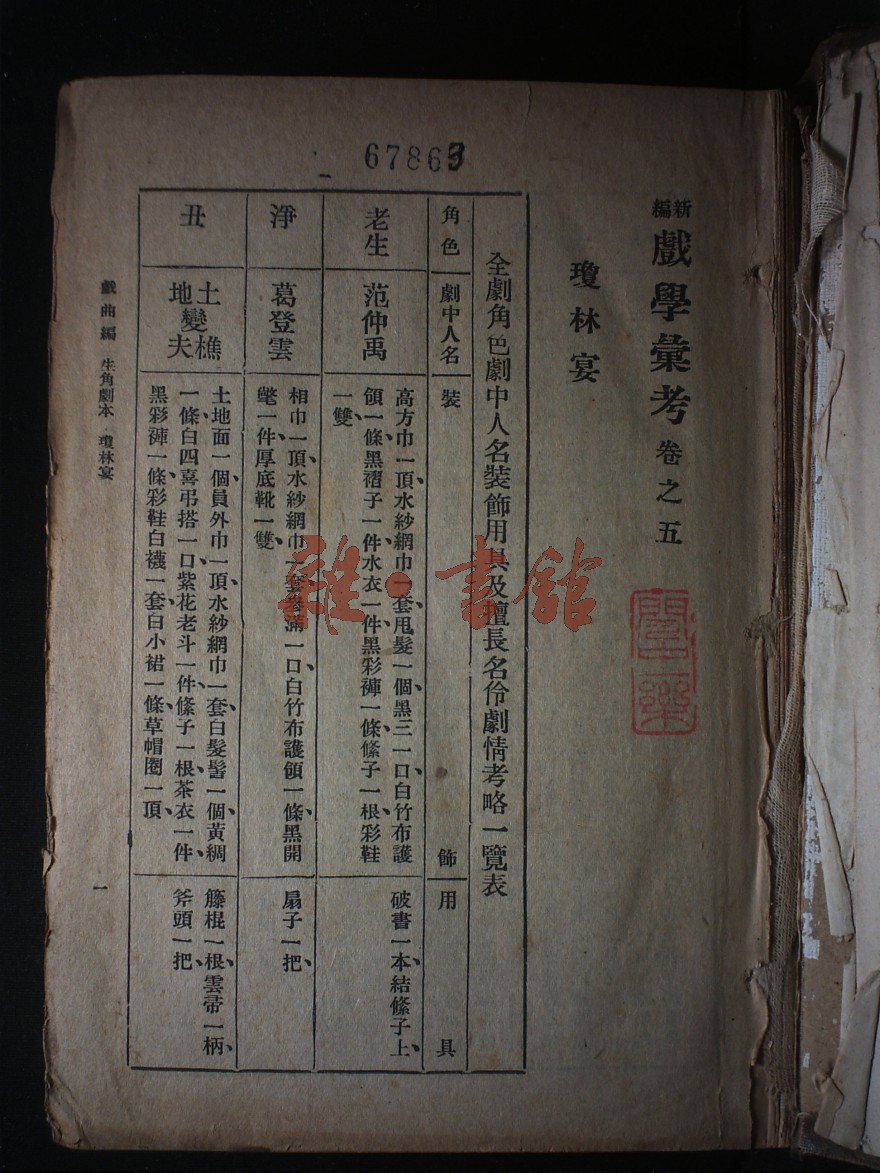 67863
新編 戲學彙考 卷之五
瓊林宴
全劇角色劇中人名裝飾用具及擅長名伶劇情考略一覽表
角色 劇中人名 裝飾 用具
老生 范仲禹
高方巾一頂、水紗網巾一套、甩髮一個、黑三一口、白竹布護
領一條、黑褶子一件、水衣一件、黑彩褲一條、絛子一根、彩鞋
一雙
破書一本、結絛子上、
淨 葛登雲
相巾一頂、水紗網巾一套、黲滿一口、白竹布護領一條、黑開
氅一件、厚底靴一雙、
扇子一把、
丑 土地變樵夫
土地面一個、員外巾一頂、水紗網巾一套、白髮髻一個、黃綢
一條、白四喜弔搭一口、紫花老斗一件、絛子一根、茶衣一件、
黑彩褲一條、彩鞋白襪一套、白小裙一條、草帽圈一頂、
籐棍一根、雲帚一柄、
斧頭一把、
戲曲編 生角劇本 瓊林宴
一
雜·書館